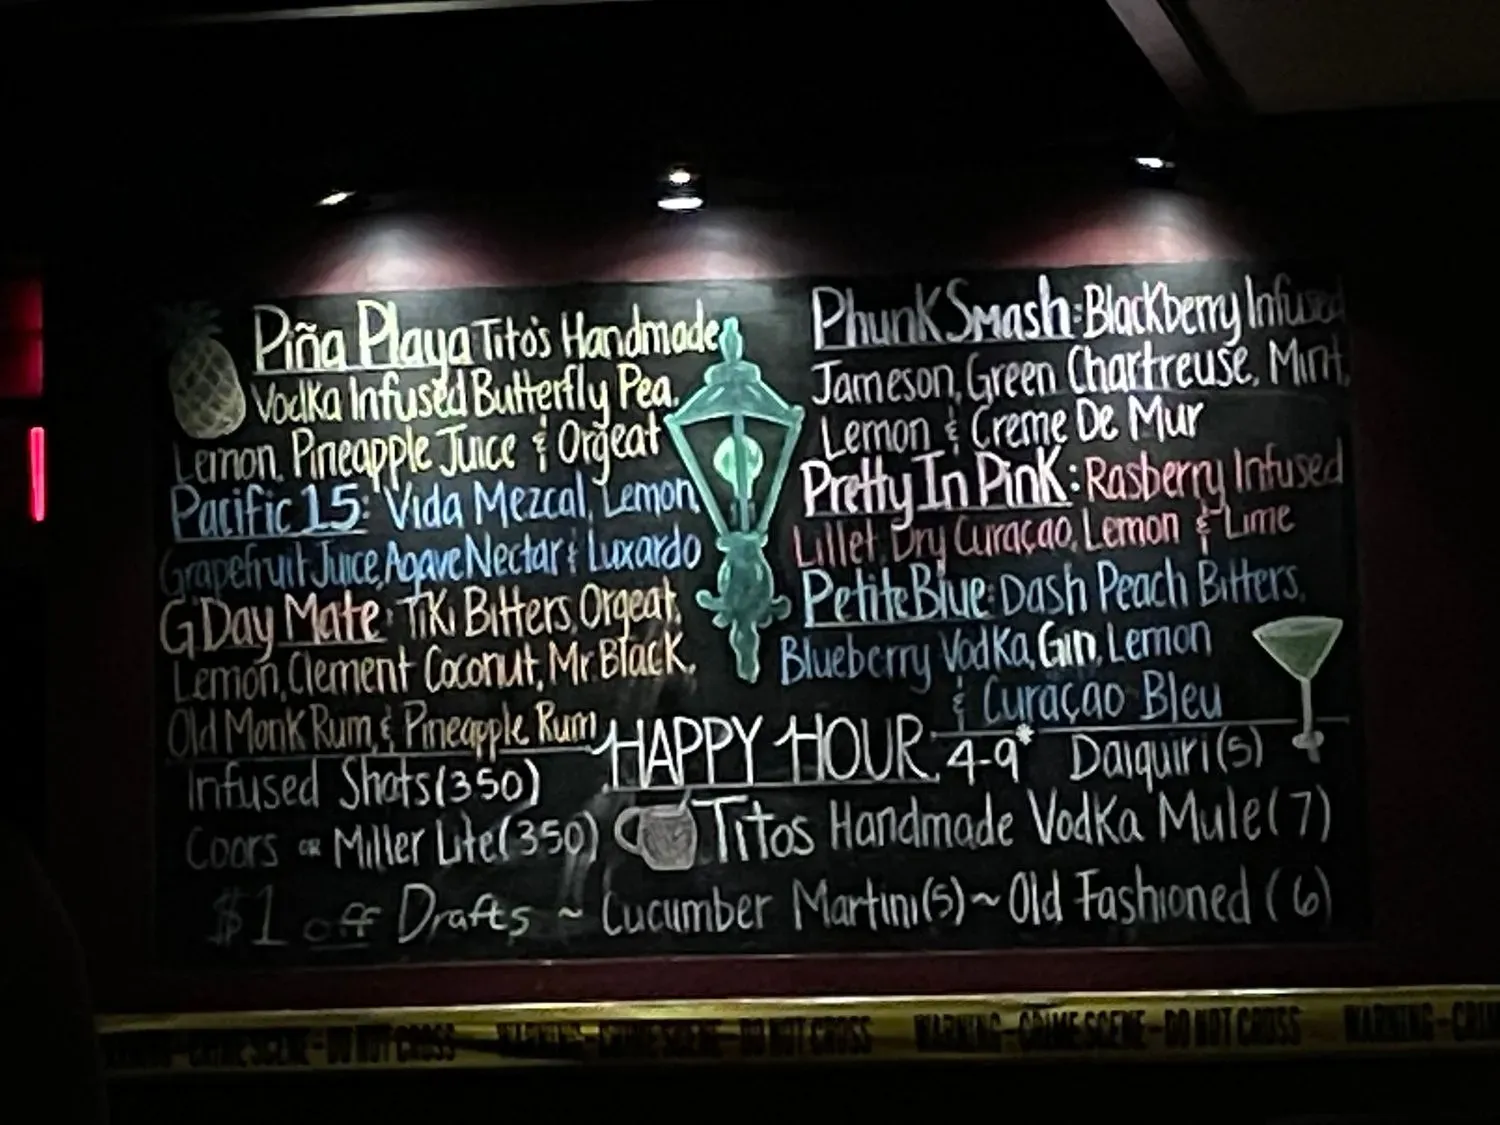 Piña Playa Tito's Handmade
Vodka Infused Butterfly Pea,
Lemon, Pineapple Juice & Orgeat
Pacific 15: Vida Mezcal, Lemon,
Grapefruit Juice, Agave Nectar & Luxardo
G Day Mate: Tiki Bitters, Orgeat,
Lemon, Clement Coconut, Mr. Black,
Old Monk Rum, & Pineapple Rum
Phunk Smash: Blackberry Infused
Jameson, Green Chartreuse, Mint,
Lemon & Creme De Mur
Pretty In Pink: Rasberry Infused
Lillet, Dry Curaçao, Lemon & Lime
Petite Blue: Dash Peach Bitters,
Blueberry Vodka, Gin, Lemon
& Curaçao Bleu
HAPPY HOUR 4-9*
Infused Shots (350)
Daiquiri (5)
Coors or Miller Lite (350)
Titos Handmade Vodka Mule (7)
$1 off Drafts ~ Cucumber Martini (5) ~ Old Fashioned (6)
WARNING - CRIME SCENE - DO NOT CROSS WARNING - CRIME SCENE - DO NOT CROSS WARNING - CRIME SCENE - DO NOT CROSS WARNING - CRIM